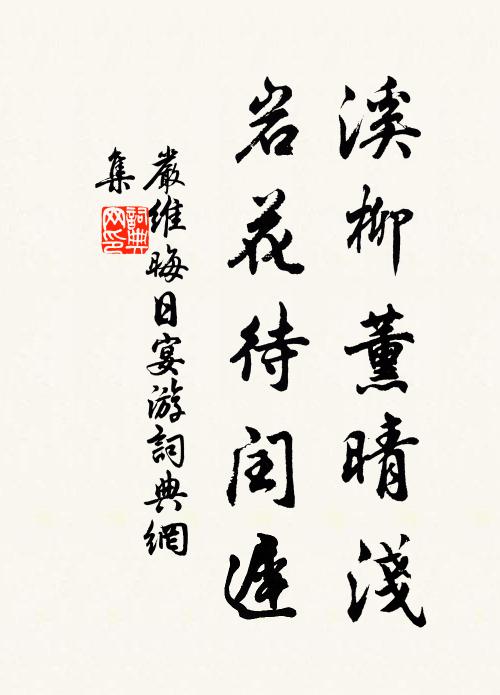 溪柳薰晴淺
岩花待閏遲
嚴維晦日宴游詞典網
集
詞典网印